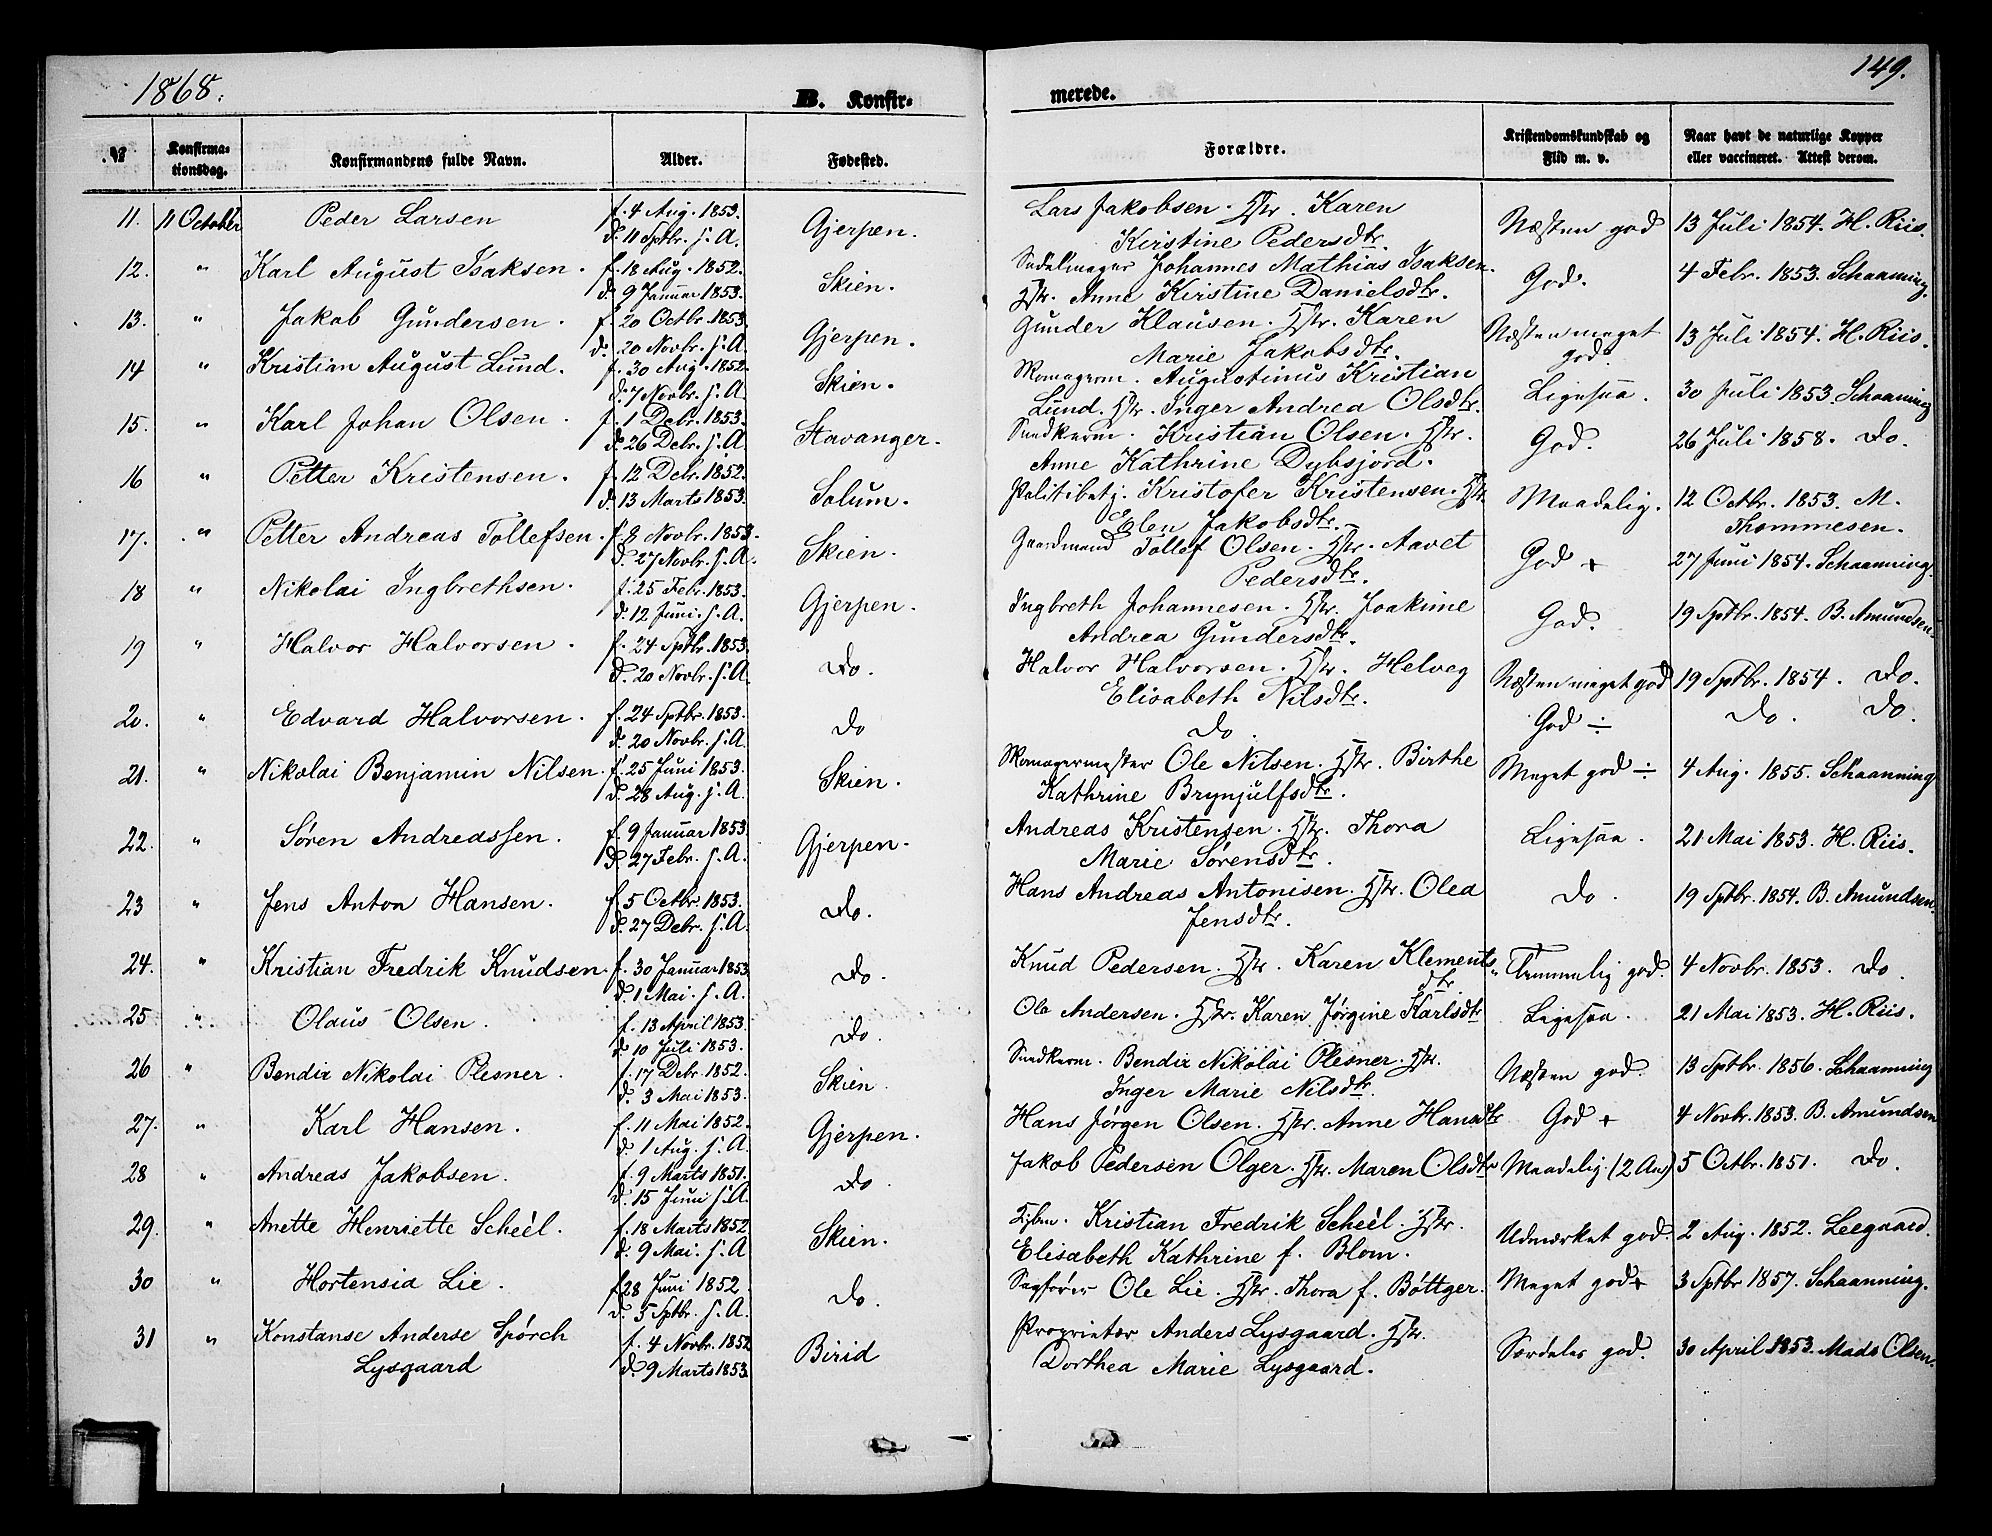 1868.
B. Konfir-
merede.
149.
№
Konfirma-
tionsdag.
Konfirmandens fulde Navn.
Alder.
Fødested.
Forældre.
Kristendomskundskab og
Flid m. v.
Naar havt de naturlige Kopper
eller vaccineret. Attest derom.
11. 11 October Peder Larsen f. 4 Aug. 1853. d. 11 Sptbr. s. A. Gjerpen. Lars Jakobsen. Hstr. Karen
Kirstine Pedersdtr. Næsten god 13 Juli 1854. H. Riis.
12. " Karl August Isaksen. f. 18 Aug. 1852. d. 9 Januar 1853. Skien. Sadelmager Johannes Mathias Isaksen.
Hstr. Anne Kirstine Danielsdtr. God. 4 Febr. 1853. Schaanning.
13. " Jakob Gundersen. f. 20 Octbr. 1853. d. 20 Novbr. s. A. Gjerpen. Gunder Klausen. Hstr. Karen
Marie Jakobsdtr. Næsten meget god. 13 Juli 1854. H. Riis.
14 " Kristian August Lund. f. 30 Aug. 1852. d. 7 Novbr. s. A. Skien. Skomagerm. Augustinus Kristian
Lund. Hstr. Inger Andrea Olsdtr. Ligesaa. 30 Juli 1853. Schaanning
15. " Karl Johan Olsen. f. 1 Debr. 1853. d. 26 Debr. s. A. Stavanger. Snedkerm. Kristian Olsen. Hstr.
Anne Kathrine Dybsjord. God. 26 Juli 1858. Do.
16 " Petter Kristensen. f. 12 Debr. 1852. d. 13 Marts 1853. Solum. Politibetj. Kristofer Kristensen. Hstr
Elen Jakobsdtr. Maadelig. 12 Octbr. 1853. M.
Thommesen.
17. " Petter Andreas Tollefsen. f. 8 Novbr. 1853. d. 27 Novbr. s. A. Skien. Gaardmand Tollef Olsen. Hstr. Aavet
Pedersdtr. God + 27 Juni 1854. Schaanning.
18 " Nikolai Ingbrethsen. f. 25 Febr. 1853. d. 12 Juni. s. A. Gjerpen. Ingbreth Johannesen. Hstr. Joakime
Andrea Gundersdtr. God. 19 Sptbr. 1854. B. Amundsen.
19 " Halvor Halvorsen. f. 24 Sptbr. 1853. d. 20 Novbr. s. A. Do. Halvor Halvorsen. Hstr. Helveg
Elisabeth Nilsdtr. Næsten meget god 19 Sptbr. 1854. Do.
20. " Edvard Halvorsen. f. 24 Sptbr. 1853. d. 20 Novbr. s. A. Do Do. God ÷ Do. Do.
21. " Nikolai Benjamin Nilsen. f. 25 Juni 1853. d. 28 Aug. s. A. Skien. Skomagermester Ole Nilsen. Hstr. Birthe
Kathrine Brynjulfsdtr. Meget god ÷ 4 Aug. 1855. Schaanning
22. " Søren Andreassen. f. 9 Januar 1853. d. 27 Febr. s. A. Gjerpen. Andreas Kristensen. Hstr. Thora
Marie Sørensdtr. Ligesaa. 21 Mai 1853. H. Riis.
23 " Jens Anton Hansen. f. 5 Octbr. 1853. d. 27 Debr. s. A. Do. Hans Andreas Antonisen. Hstr. Olea
Jensdtr. Do. 19 Sptbr. 1854. B. Amundsen.
24. " Kristian Fredrik Knudsen. f. 30 Januar 1853. d. 1 Mai. s. A. Do. Knud Pedersen. Hstr. Karen Klements
dtr. Temmelig god. 4 Novbr. 1853. Do.
25 " Olaus Olsen. f. 13 April 1853. d 10 Juli 1853. Do. Ole Andersen. Hstr. Karen Jørgine Karlsdtr Ligesaa. 21 Mai 1853. H. Riis.
26 " Bendix Nikolai Plesner. f. 17 Debr. 1852. d. 3 Mai 1853. Skien. Snedkerm. Bendix Nikolai Plesner. Hstr.
Inger Marie Nilsdtr. Næsten god. 13 Sptbr. 1856. Schaanning
27. " Karl Hansen. f. 11 Mai 1852. d. 1 Aug. s. A. Gjerpen. Hans Jørgen Olsen. Hstr. Anne Hansdtr God + 4 Novbr. 1853. B. Amundsen
28 " Andreas Jakobsen. f. 9 Marts 1851. d. 15 Juni s. A. Do. Jakob Pedersen Olger. Hstr. Maren Olsdtr Maadelig. (2 Aar) 5 Octbr. 1851. Do.
29. " Anette Henriette Scheèl. f. 18 Marts 1852 d. 9 Mai. s. A Skien. Kristian Fredrik Scheèl. Hstr.
Elisabeth Kathrine f. Blom. Udmærket god. 2 Aug. 1852. Leegaard.
30 " Hortensia Lie. f. 28 Juni 1852. d. 5 Sptbr. s. A. Do. Sagfører Ole Lie. Hstr. Thora f. Bøttger. Meget god + 3 Sptbr 1857. Schaanning.
31 " Konstanse Anderse Spørch
Lysgaard f. 4 Novbr. 1852 d. 9 Marts 1853. Birid Proprietær Anders Lysgaard. Hstr.
Dorthea Marie Lysgaard. Særdeles god. 30 April 1853. Mads Olsen.